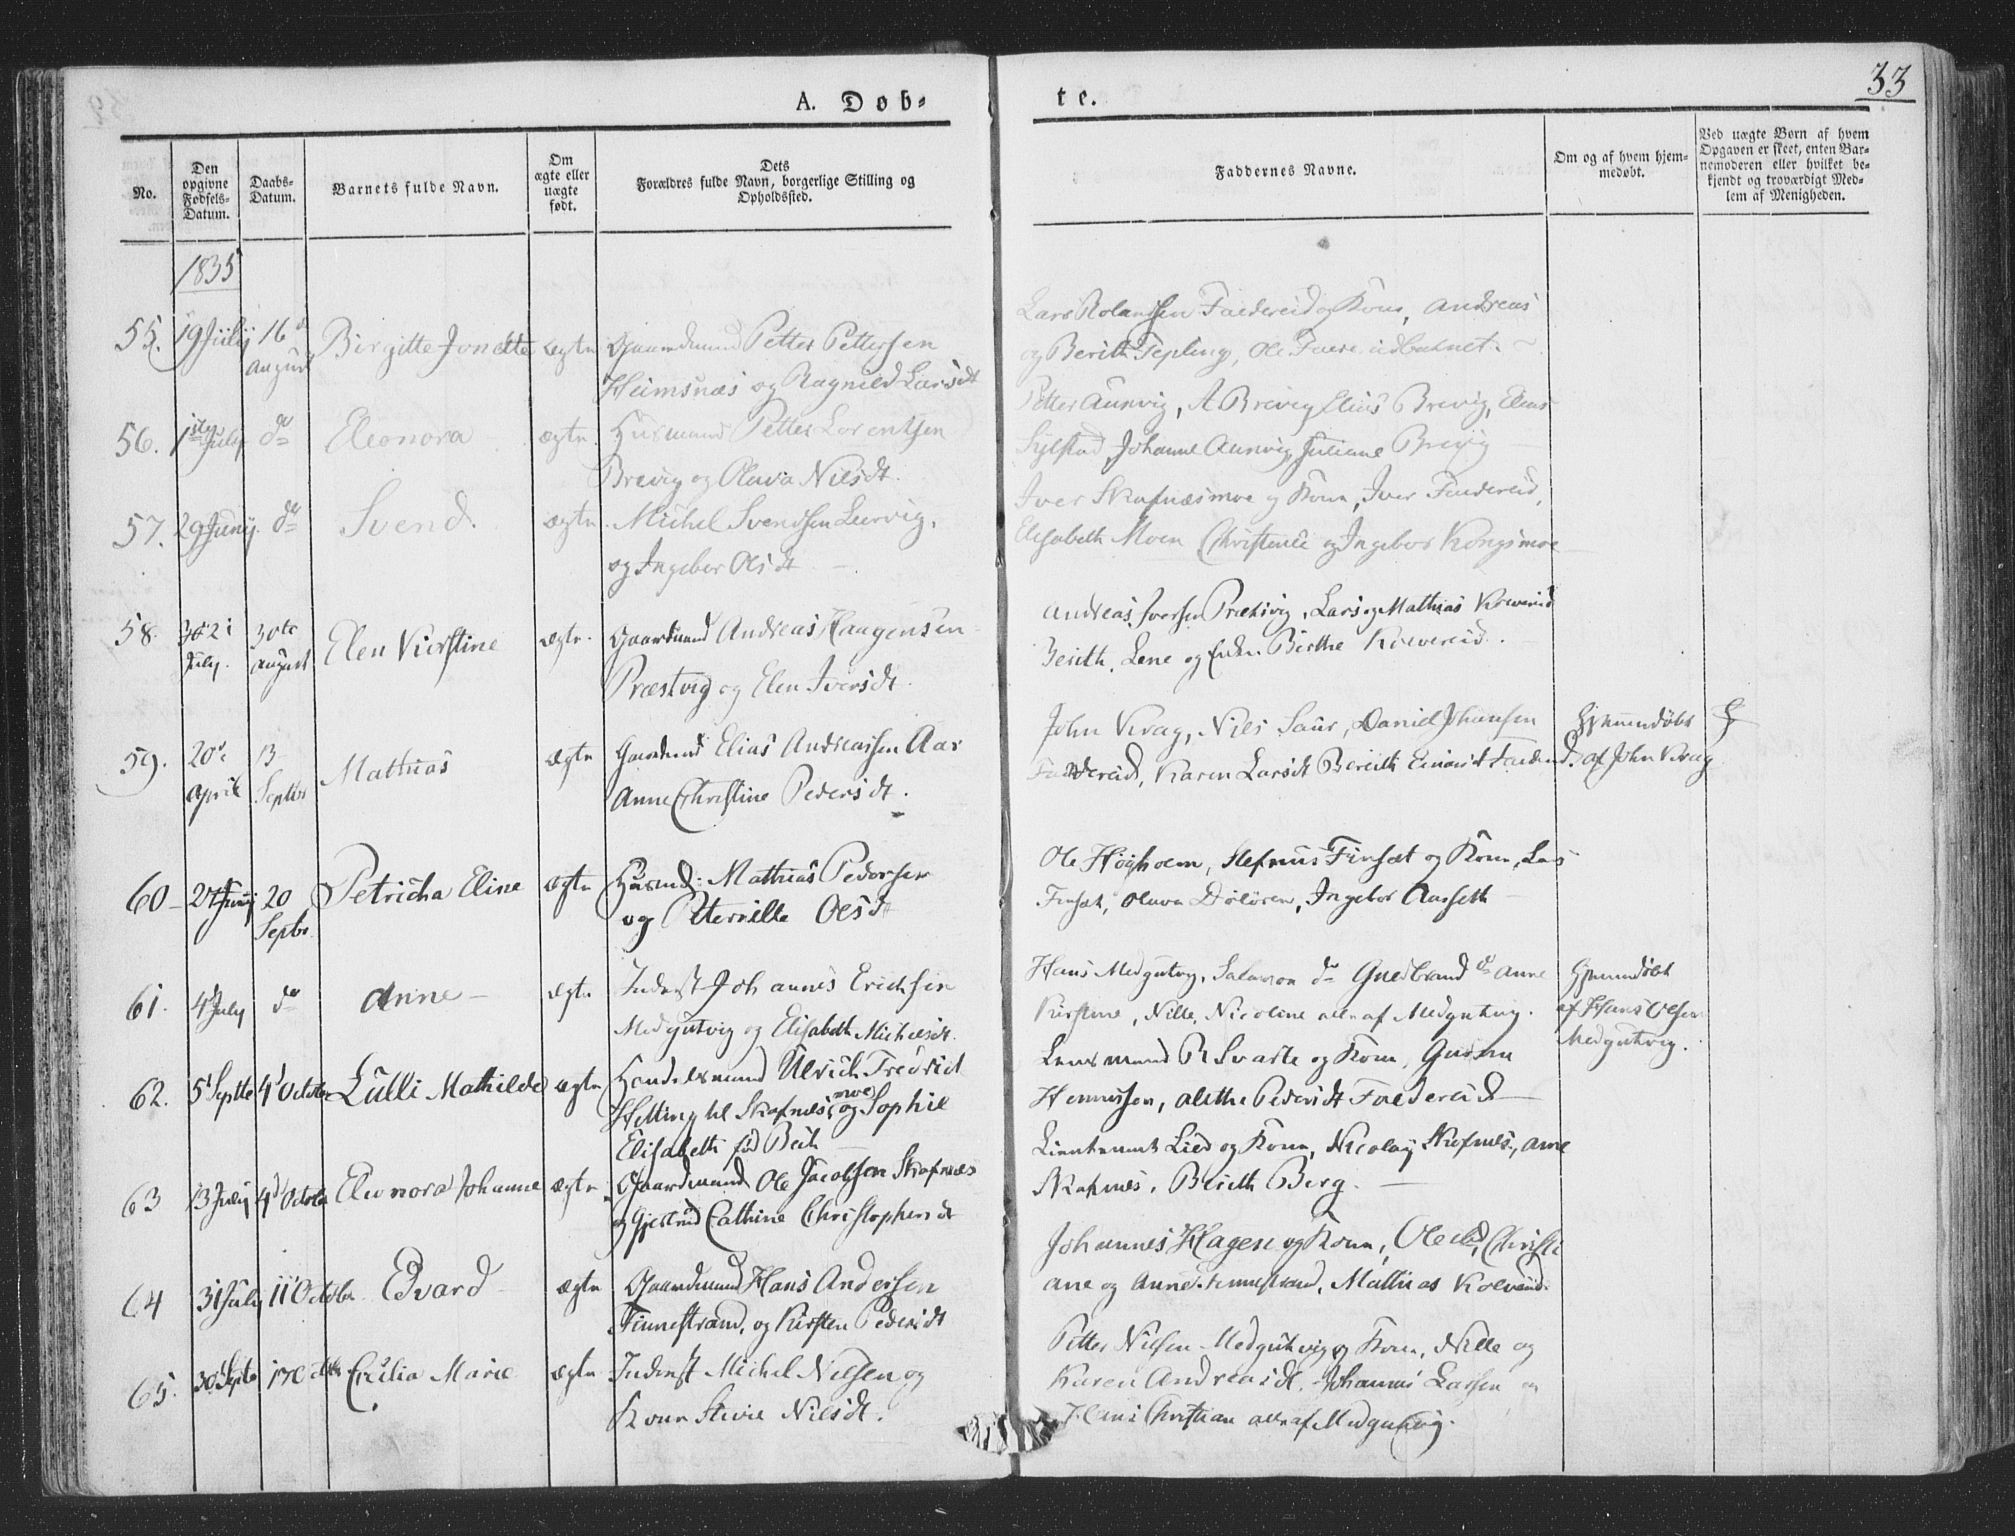 A. Døb-
te.
33
No.
Den opgivne Fødsels-Datum.
Daabs-Datum.
Barnets fulde Navn.
Om ægte eller uægte født.
Dets Forældres fulde Navn, borgerlige Stilling og Opholdssted.
Faddernes Navne.
Om og af hvem hjemmedøbt.
Ved uægte Børn af hvem Opgaven er skeet, enten Barnemoderen eller hvilket bekjendt og troværdigt Medlem af Menigheden.
1835
55. 19 July 16 August Birgitte Jonette ægte Gaardmand Petter Pettersen
Heimsnæs og Ragnild Larsdt
Lars Rolandsen Foldereid og Kone, Andreas
og Berith Tepling, Ole
56. 1ste July do Eleonora ægte Husmand Petter Lorentsen
Brevig og Olava Nilsdt.
Petter Aunvig, A Brevig Elias Brevig, Elen
Johanne Aunvig, Juliane Brevig
57. 29 Juny do Svend. ægte Michel Svendsen Leervig.
og Ingebor Olsdt
Iver Skafnæsmoe og Kone, Iver Foldereid,
Elisabeth Moen og Ingebor Kongsmoe
58. July 30te August Elen Kirstine ægte Gaardmand Andreas Haagensen
Præstvig og Elen Iversdt.
Andreas Iversen Præstvig, Lars og Mathias Kolvereid
Berith, Lene og Birthe Kolvereid.
59. 20de April 13 Septbr Mathias ægte Gaardmd Elias Andreassen Aar
Anne Christine Pedersdt.
John Krag, Nils Saur, Daniel Johansen
Foldereid, Karen Larsdt Bereith
Hjemmedøbt
af John Krag
60 27 Juny 20 Septbr. Petricha Eline ægte Husmd: Mathias Pedersen
og Olsdt
Ole Høyholm, Finsæt og Kone, Lars
Finsæt, Olava Ingebor Aunseth
61. 4 July do Anne ægte Inderst Johannes Erichsen
Medgutvig og Elisabeth Michelsdt.
Hans Medgutvig, Salamon do Guldbrand do Anne
Kirstine, Nille, Nicoline alle af Medgutvig.
Hjemmedøbt
af Hans Olsen
Medgutvig.
62. 5 Septbr 4 October Lulli Mathilde ægte Handelsmand Ulrich Fredrich
til Skafnæsmoe og Sophie
Elisabeth fød
Lensmand R Svarte og Kone,
Hennissen, Alethe Pedersdt Foldereid
63 13 July 4 October Eleonora Johanne ægte Gaardmand Ole Jacobsen Skafnæs
og Gjertrud Cathrine Christophersdt
Lieutenant Lied og Kone, Nicolay Skafnæs, Ane
Skafnæs, Berith Berg.
64 31 July 11 October Edvard ægte Gaardmand Hans Andersen
Finnestrand, og Kirsten Pedersdt
Johannes Hagen og Kone, Ole Christi
ane og Anne Finnestrand, Mathias Kolvereid.
65. 30 Septb Cecilia Marie ægte Inderst Michel Nielsen og
Kone Nilsdt.
Petter Nilsen Medgutvig og Kone, Nille og
Karen Andreasdt, Johannes Larsen og
Hans Christian alle af Medgutvig.